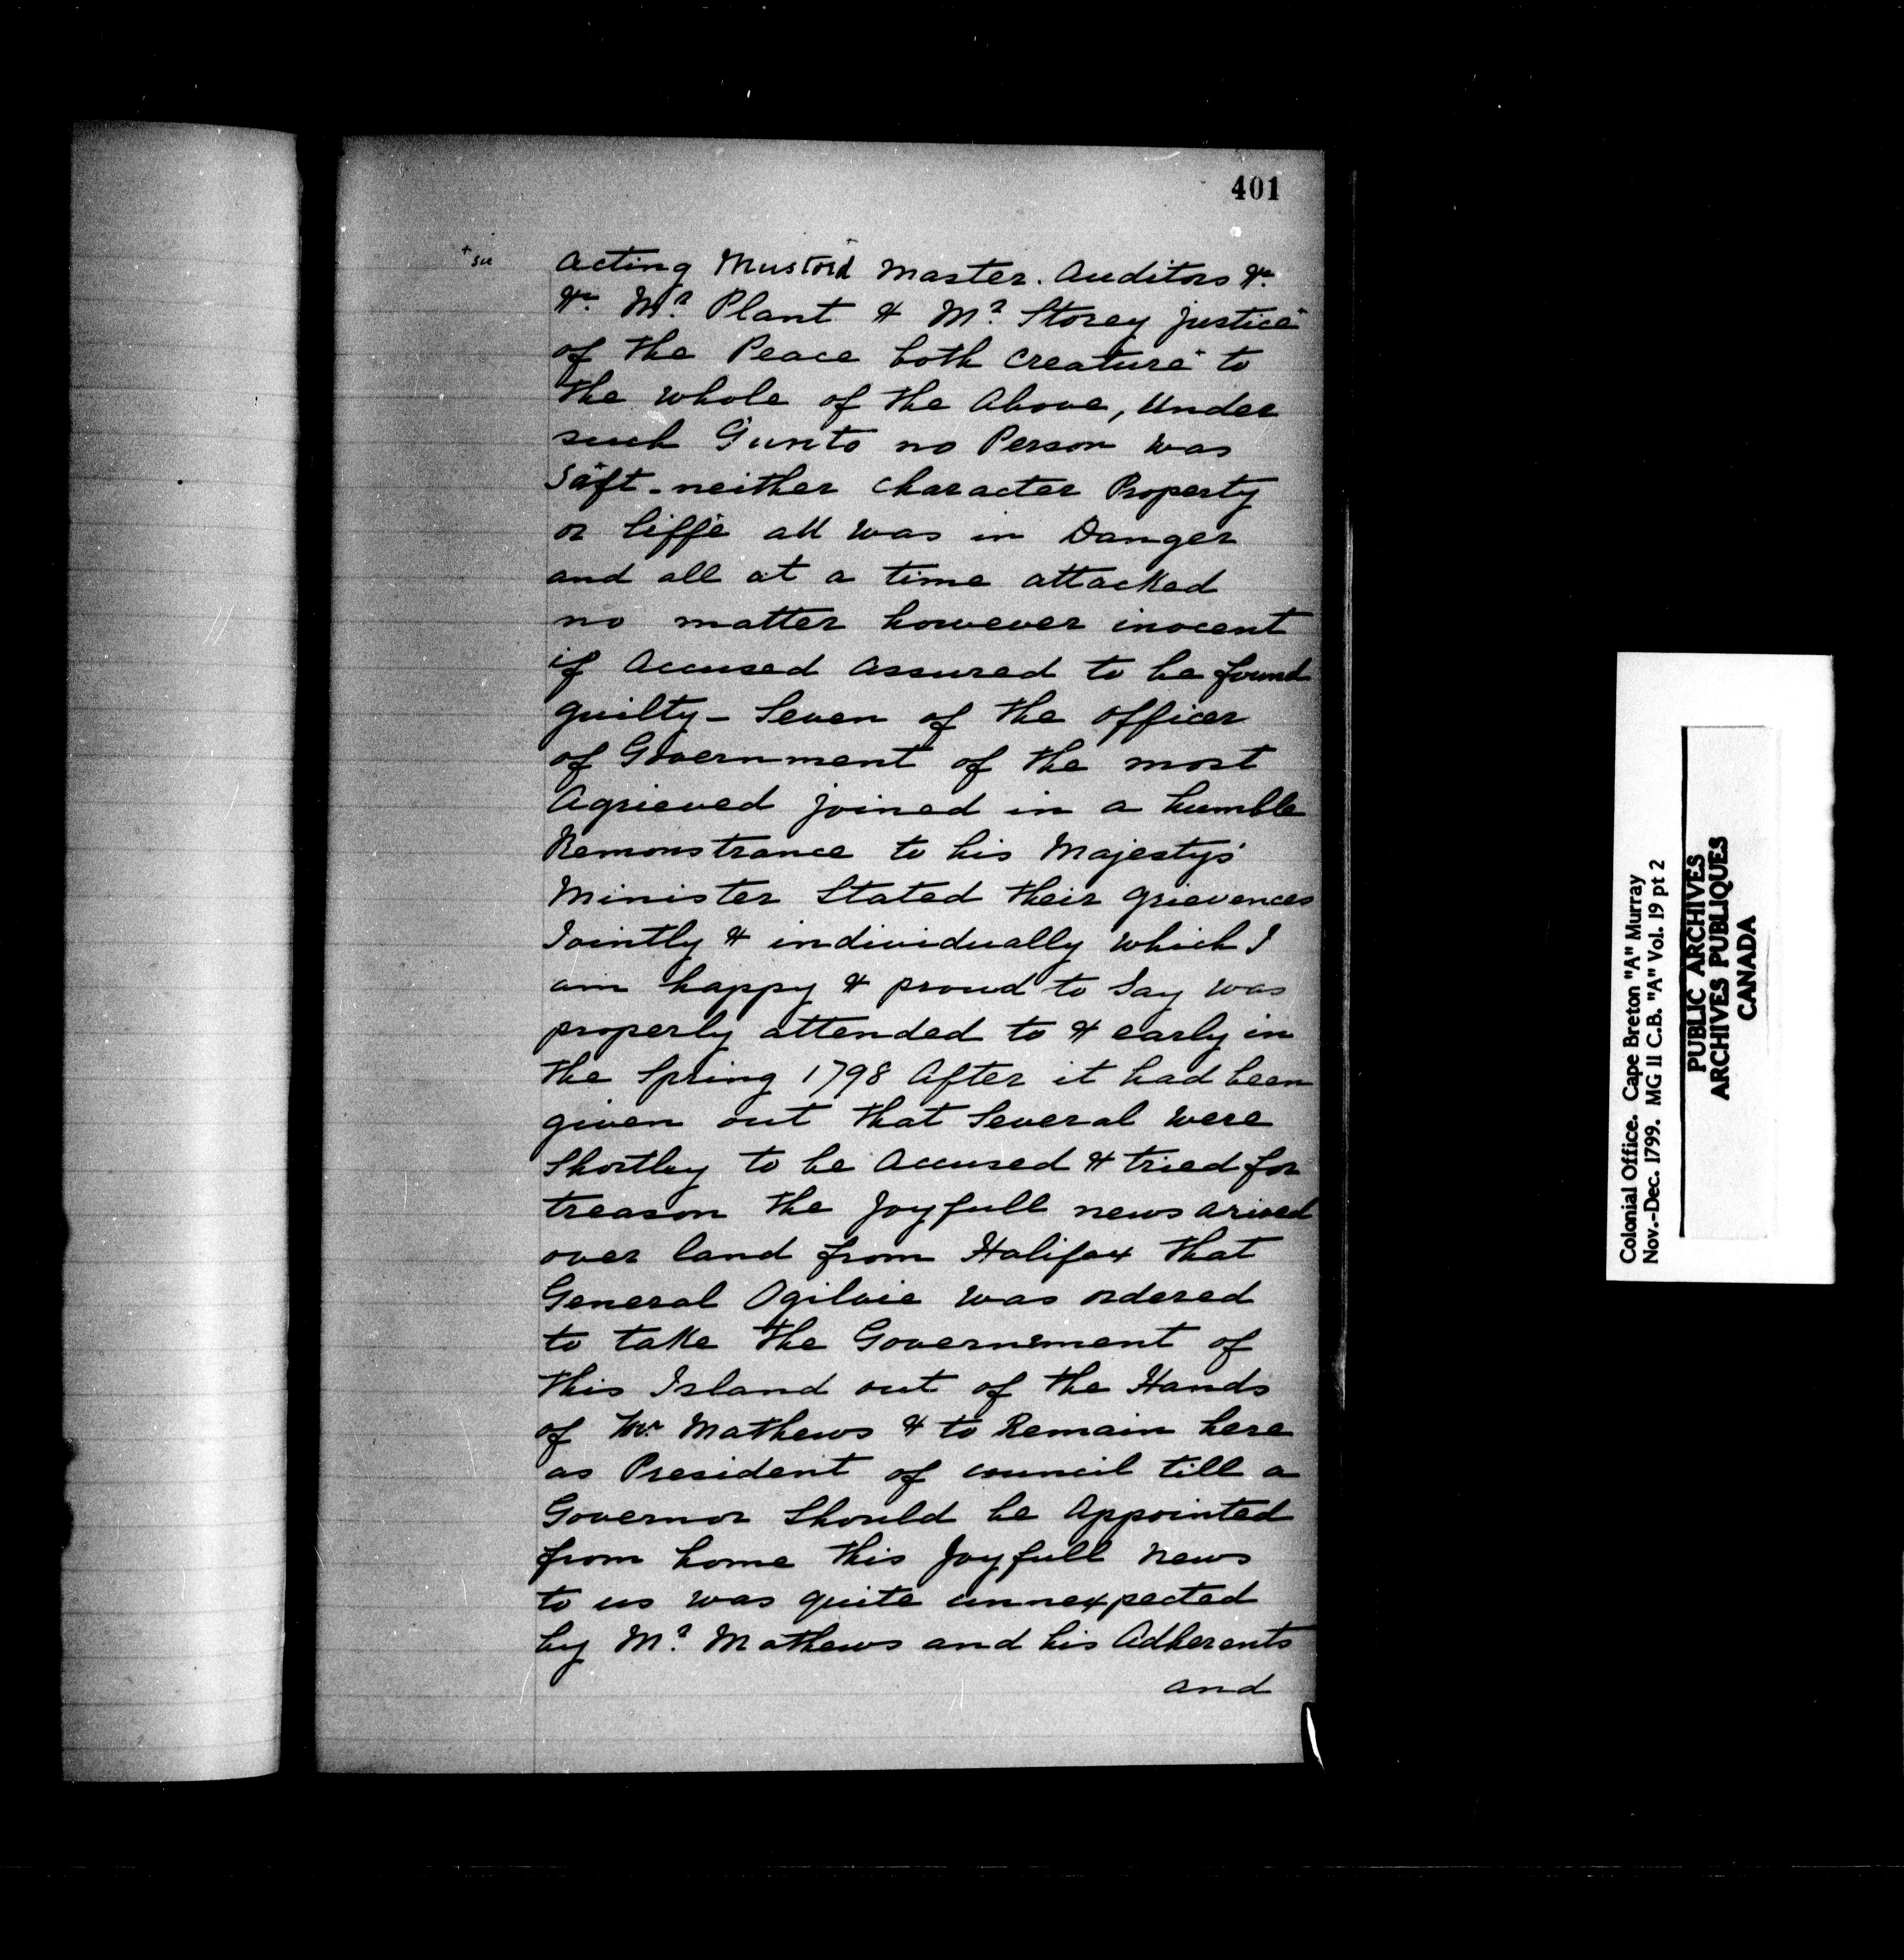 401
+ sic
Acting Mustord Master. Auditors &c
&c Mr. Plant & Mr. Storey justice
of the Peace both Creature to
the whole of the Above, Under
such Gunto no Person was
Saft - neither Character Property
or liffe all was in Danger
and all at a time attacked
no matter however inocent
if Accused assured to be found
guilty - Seven of the officer
of Government of the most
Agrieved joined in a humble
Remonstrance to his Majestys
Minister Stated their grievences
Jointly & individually which I
am happy & proud to Say was
properly attended to & early in
the Spring 1798 After it had been
given out that Several were
Shortley to be Accused & tried for
treason the Joyfull news arived
over land from Halifax that
General Ogilvie was ordered
to take the Government of
this Island out of the Hands
of Mr. Mathews & to Remain here
as President of council till a
Governor Should be Appointed
from home this Joyfull news
to us was quite unnexpected
by Mr. Mathews and his Adherents
and
Colonial Office. Cape Breton "A" Murray
Nov.-Dec. 1799. MG 11 C.B. "A" Vol. 19 pt 2
PUBLIC ARCHIVES
ARCHIVES PUBLIQUES
CANADA